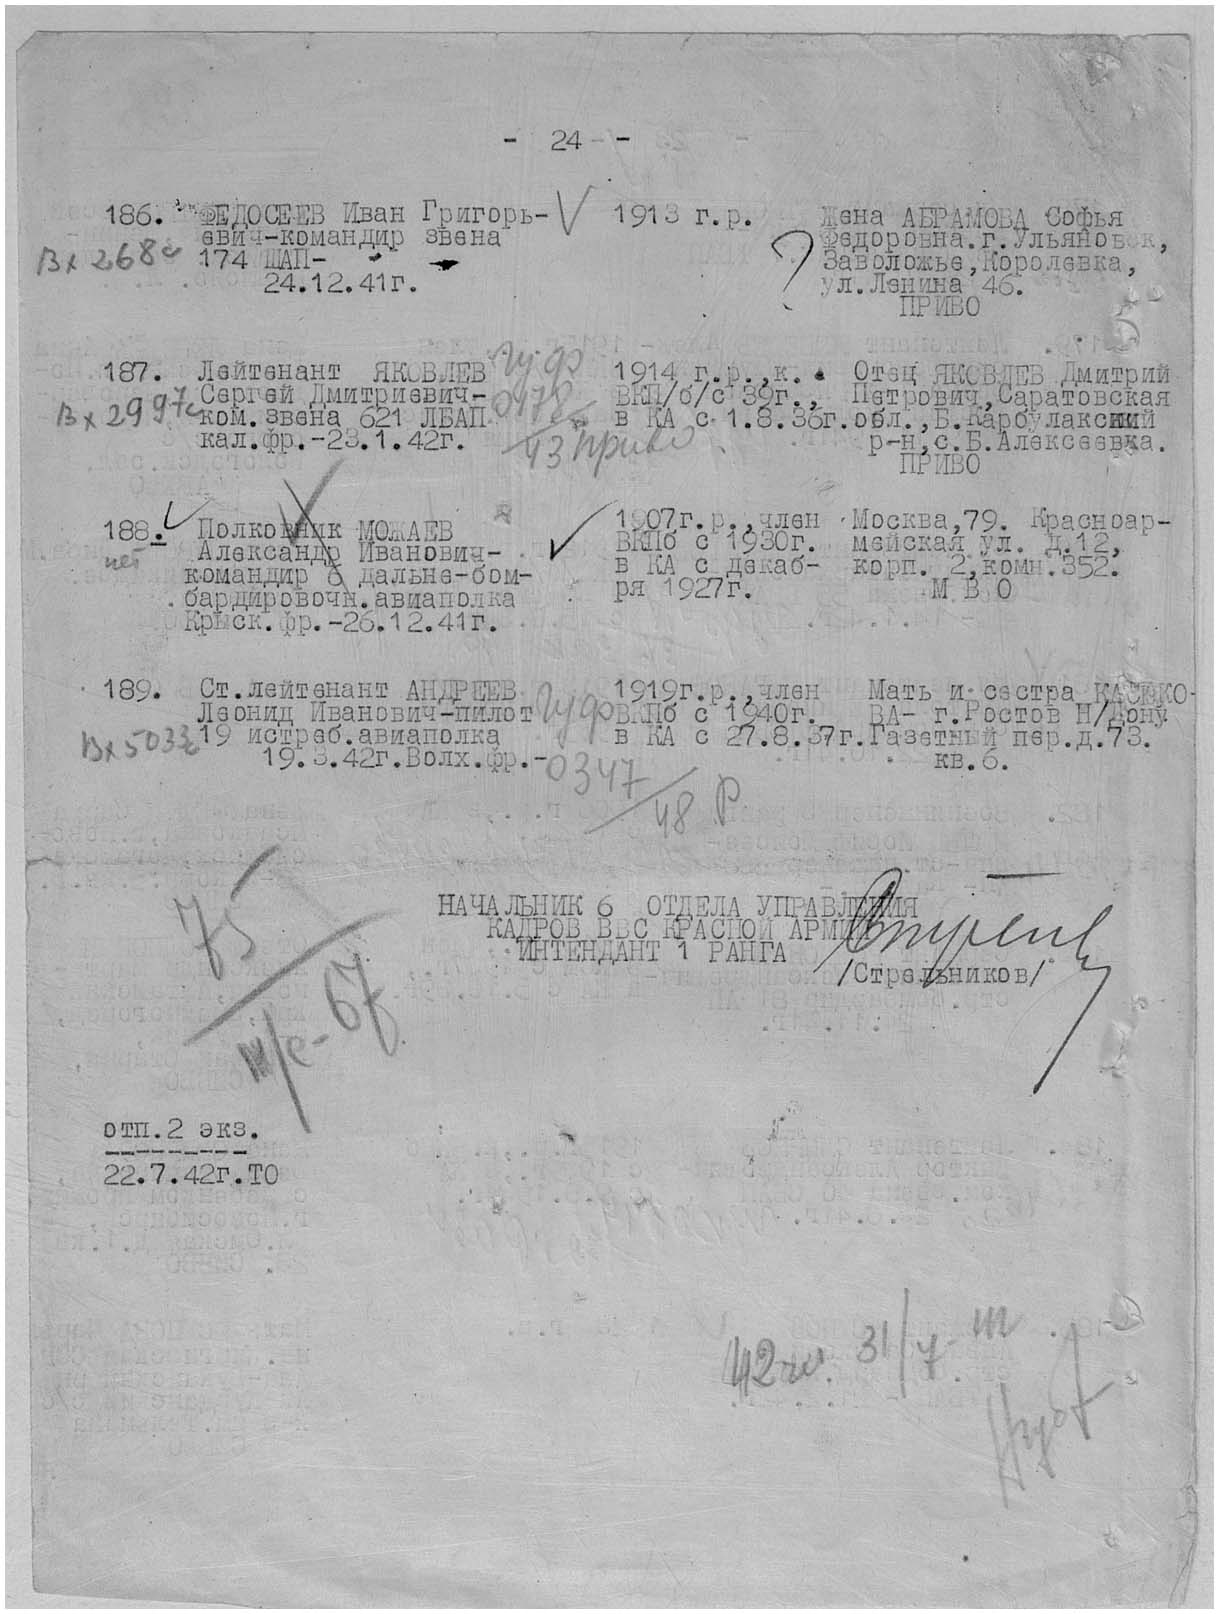 - 24 -
186. ФЕДОСЕЕВ Иван Григорь- 1913 г.р. Жена АБРАМОВА Софья
евич-командир звена Федоровна.г.Ульяновск,
Вх 268с 174 ШАП- ? Заволожье,Королевка,
24.12.41г. ул.Ленина 46.
ПРИВО
187. Лейтенант ЯКОВЛЕВ 1914 г.р.,к. Отец ЯКОВЛЕВ Дмитрий
Вх 2997с Сергей Дмитриевич- 0478 ВКП/б/с 39г., Петрович,Саратовская
ком.звена 621 ЛБАП в КА с 1.8.36г. обл.,Б.Карбулакский
кал.фр.-23.1.42г. 43 приво р-н,с.Б.Алексеевка.
ПРИВО
188. Полковник МОЖАЕВ 1907г.р.,член Москва,79. Красноар-
нет Александр Иванович- ВКПб с 1930г. мейская ул. д.12,
командир 6 дальне-бом- в КА с декаб- корп. 2,комн.352.
бардировочн.авиаполка ря 1927г. М В О
Крыск.фр.-26.12.41г.
189. Ст.лейтенант АНДРЕЕВ 1919г.р.,член Мать и сестра
Леонид Иванович-пилот ВКПб с 1940г. ВА- г.Ростов Н/Дону
Вх 5033с 19 истреб.авиаполка в КА с 27.8.37г. Газетный пер.д.73.
19.3.42г.Волх.фр.- 0347 кв.6.
48 р
НАЧАЛЬНИК 6 ОТДЕЛА УПРАВЛЕНИЯ
КАДРОВ ВВС КРАСНОЙ АРМИИ
ИНТЕНДАНТ 1 РАНГА
/Стрельников/
75
67
отп.2 экз.
---------
22.7.42г.ТО
31/7